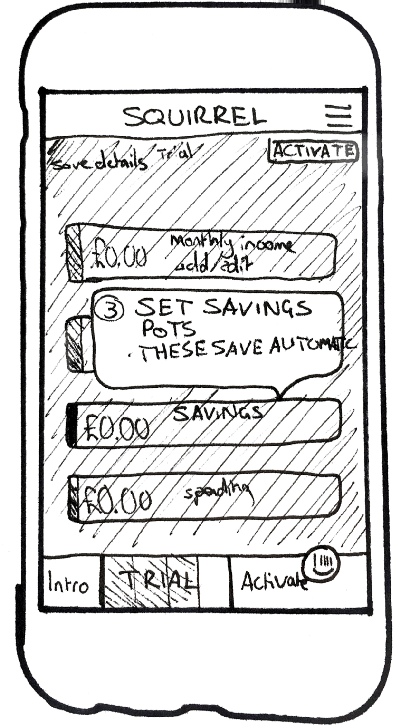 SQUIRREL
save details Trial
ACTIVATE
£0.00 Monthly income
add/edit
③ SET SAVINGS
POTS
. THESE SAVE AUTOMATIC
SAVINGS
£0.00
£0.00 spending
Intro
TRIAL
Activate